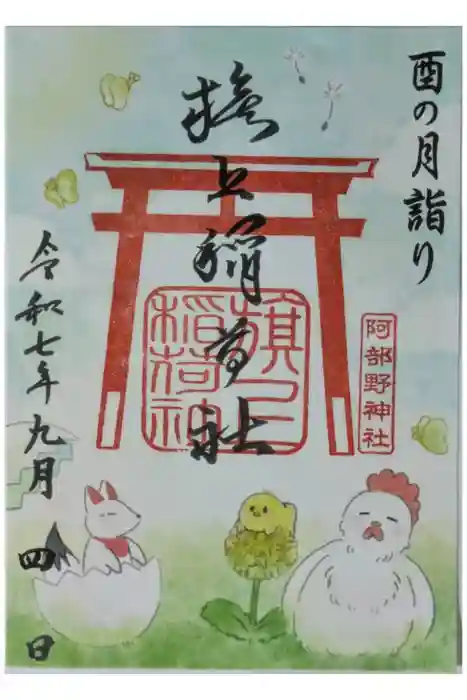 酉の月詣り
旗上稲荷社
旗上
稲荷神
阿部野神社
令和七年九月四日